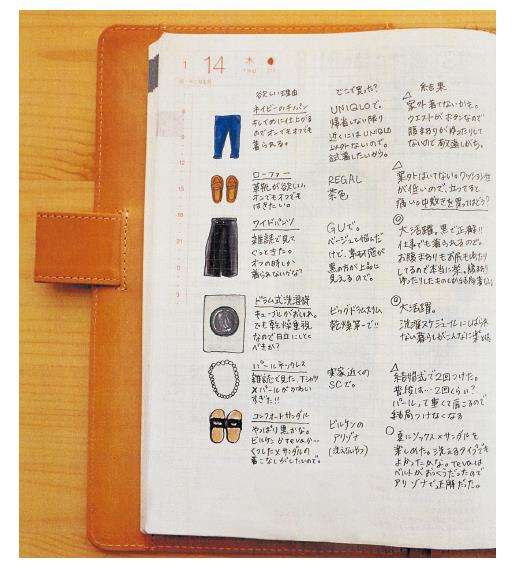 1 14 木
欲しい理由
どこで買った?
結果
ネイビーのチノパン
キレイめに仕上がる
のでオンでもオフでも
着られる。
UNIQLOで。
帰省しない限り
近くにはUNIQLO
以外ないので。
試着したいから。
△
案外着てないかも。
ウエストがボタンなので
腰まわりがゆったりして
ないので敬遠しがち。
ローファー
革靴が欲しい。
オンでもオフでも
はきたい。
REGAL
茶色
△
案外はいてない。クッション性
が低いので、立ってると
痛い。中敷きを買ってはどう?
ワイドパンツ
雑誌で見て
ぐっときた。
オフの時しか
着られないかな?
GUで。
ベージュと悩んだ
けど、素材感が
黒の方が上品に
見えるので。
◎
大活躍。黒で正解!!
仕事でも着られるので。
お腹まわりもお尻もゆったり
してるので本当に楽。
ドラム式洗濯機
キューブルがおしゃれ。
でも乾燥重視
なので日立にしとく
べきか?
ビッグドラムスリム
乾燥第一で!!
◎
大活躍。
洗濯スケジュールにしばられ
ない暮らしがこんなに楽とは。
パールネックレス
雑誌で見た、Tシャツ
×パールがかわい
すぎた!!
実家近くの
SCで。
△
結婚式で2回つけた。
普段は…2回くらい?
パールって重くて肩こるので
結局つけなくなる
コンフォートサンダル
やっぱり黒かな。
ビルケンかtevaか…
くつした×サンダルの
着こなしがしたいので。
ビルケンの
アリゾナ
(洗えないやつ)
○
夏にソックス×サンダルを
楽しめた。洗えるタイプでも
よかったかな。tevaは
ベルトがおっくうだったので
アリゾナで正解だった。